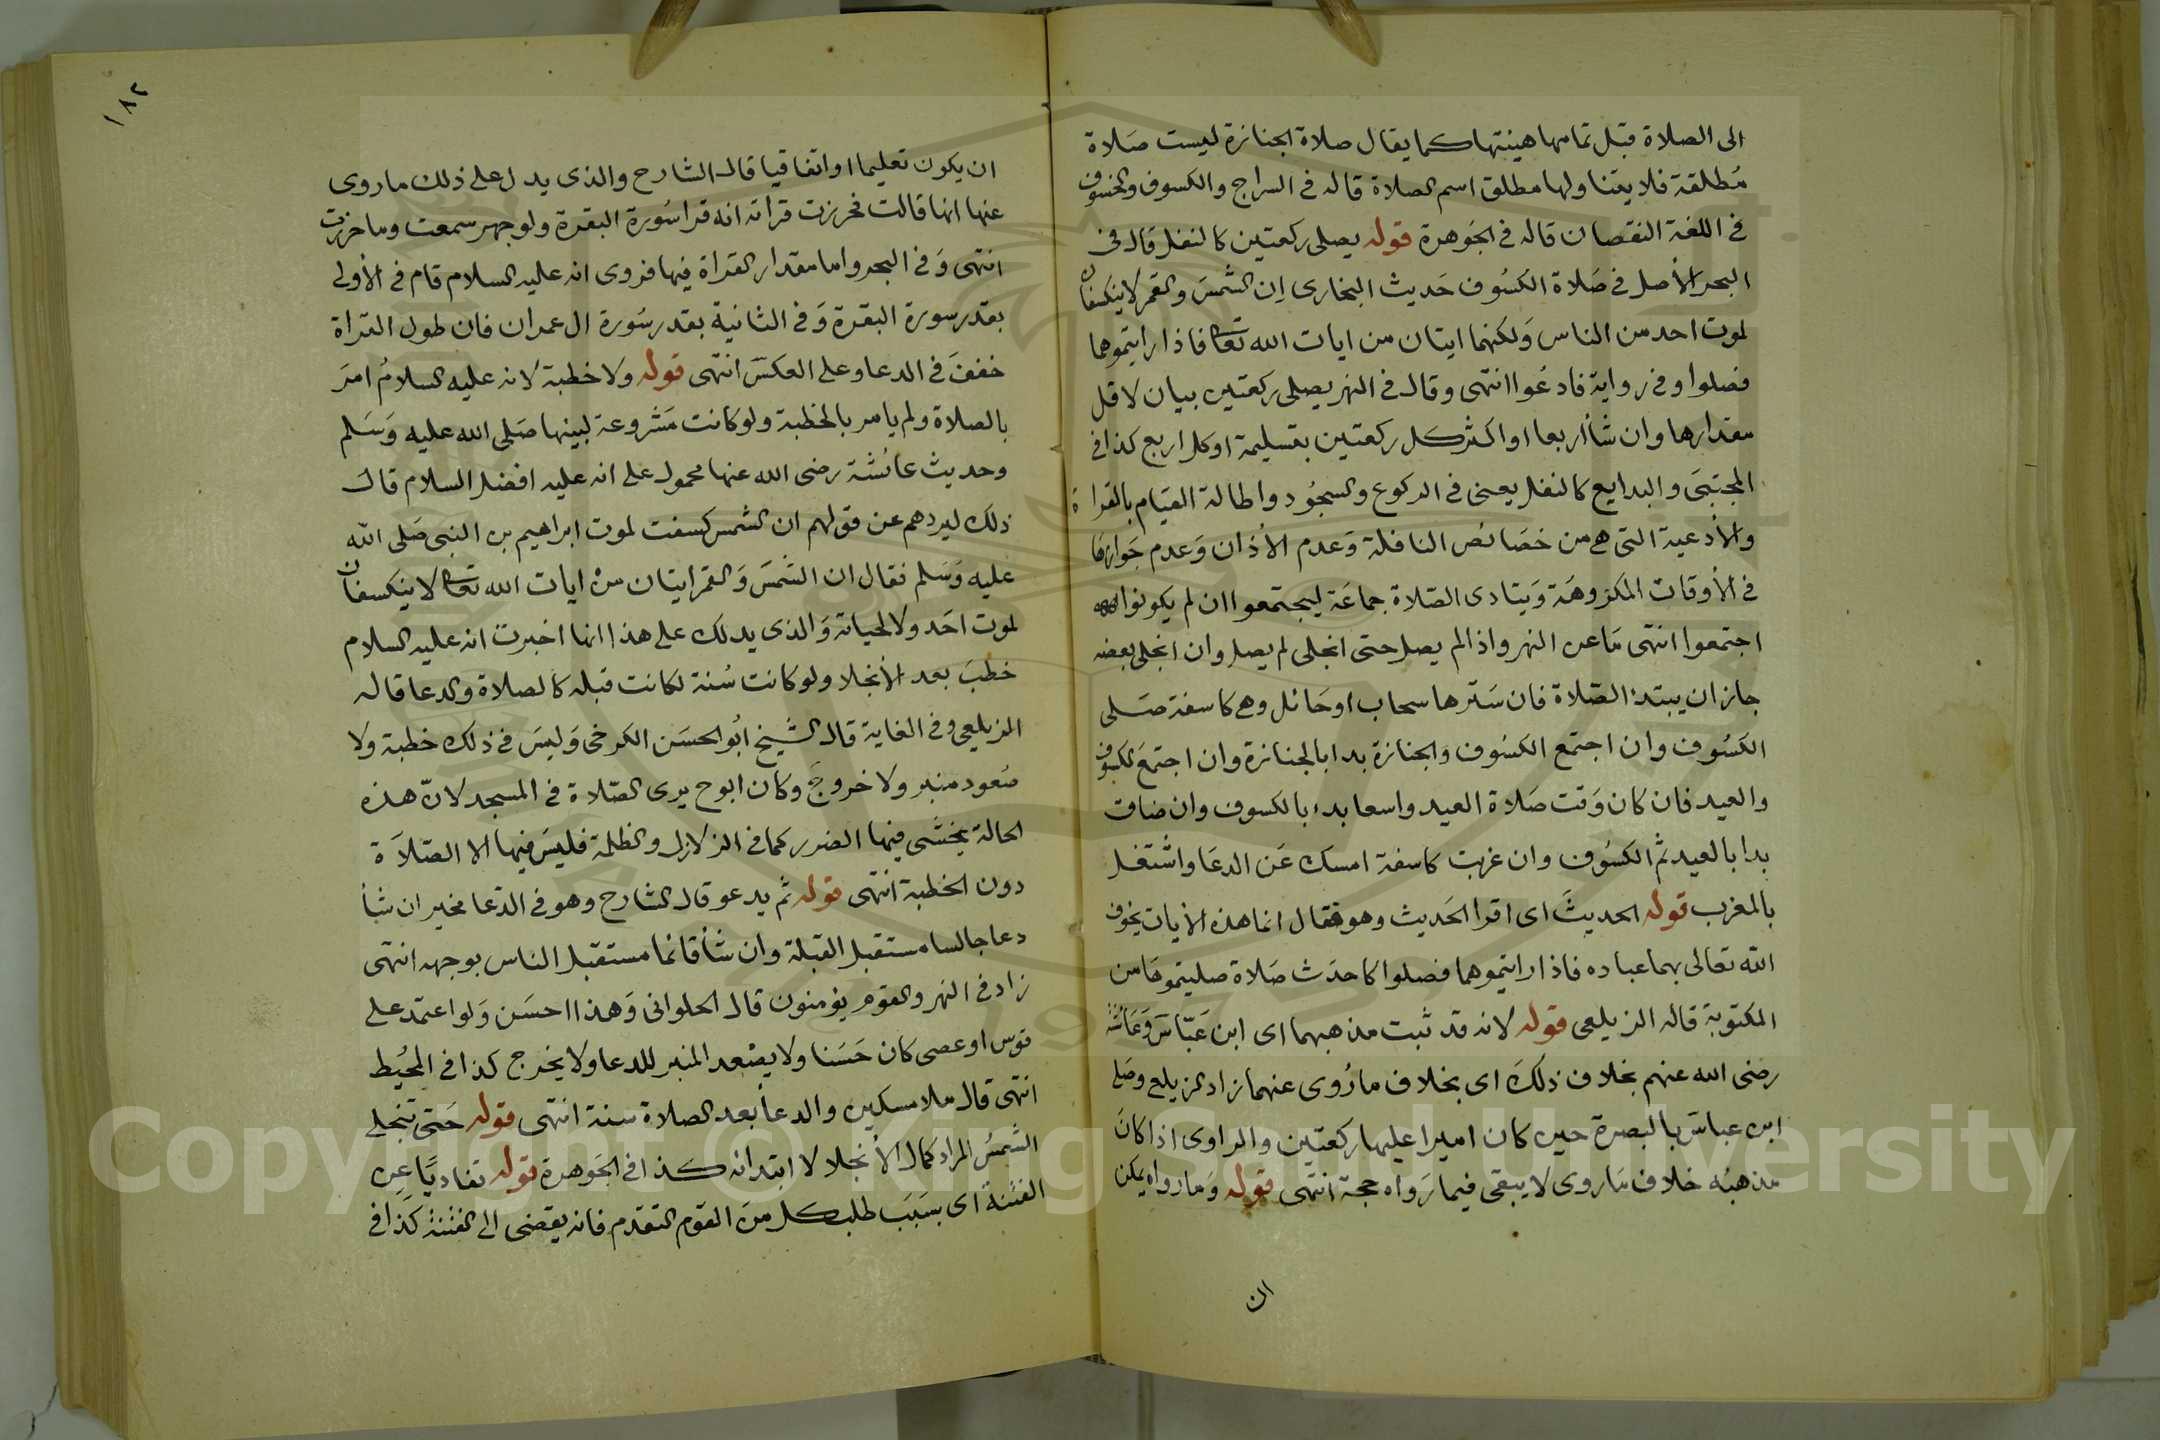 الى الصلاة قبل تمامها هينتها كما يقال صلاة الجنازة ليست صلاة
مطلقة فلا يتناولها مطلق اسم الصلاة قاله في السراج والكسوف والخسوف
في اللغة النقصان قاله في الجوهرة قوله يصلى ركعتين كالنفل قال في
البحر الأصل في صلاة الكسوف حديث البخارى إن الشمس والقمر لا ينكسفان
لموت احد من الناس ولكنهما ايتان من ايات الله تعا فاذا رايتموهما
فصلوا وفي رواية فادعوا انتهى وقال في النهر يصلى ركعتين بيان لاقل
مقدارها وان شأ أربعا او اكثر كل ركعتين بتسليمة او كل اربع كذا في
المجتبى والبدايع كالنفل يعنى في الركوع والسجود واطالة القيام بالقراة
والأدعية التى هي من خصائص النافلة وعدم الأذان وعدم جوازها
في الأوقات المكروهة ويتادى الصلاة جماعة ليجتمعوا ان لم يكونوا
اجتمعوا انتهى ما عن النهر واذا لم يصل حتى انجلى لم يصل وان انجلى بعضه
جاز ان يبتدأ الصلاة فان سترها سحاب او حائل وهي كاسفة صلى
الكسوف وان اجتمع الكسوف والجنازة بدا بالجنازة وان اجتمع الكسوف
والعيد فان كان وقت صلاة العيد واسعا بدء بالكسوف وان ضاقت
بدا بالعيد ثم الكسوف وان غربت كاسفة امسك عن الدعا واشتغل
بالمغرب قوله الحديث اى اقرا الحديث وهو فقال انما هذه الأيات يخوف
الله تعالى بهما عباده فاذا رايتموهما فصلوا كاحدث صلاة صليتموها من
المكتوبة قاله الزيلعى قوله لانه قد ثبت مذهبهما اى ابن عباس وعائشة
رضى الله عنهم بخلاف ذلك اى بخلاف ما روى عنهما زاد الزيلعى وصلى
ابن عباس بالبصرة حين كان اميرا عليها ركعتين والراوى اذا كان
مذهبه خلاف ما روى لا يبقى فيما رواه حجة انتهى قوله وما رواه يمكن
ان
١٨٢
ان يكون تعليما او اتفاقيا قال الشارح والذى يدل على ذلك ما روى
عنها انها قالت فحزرت قراته انه قرا سورة البقرة ولو جهر سمعت وما حزرت
انتهى وفي البحر واما مقدار القراة فيها فروى انه عليه السلام قام في الأولى
بقدر سورة البقرة وفي الثانية بقدر سورة ال عمران فان طول القراة
خفف في الدعا وعلى العكس انتهى قوله ولا خطبة لانه عليه السلام امر
بالصلاة ولم يامر بالخطبة ولو كانت مشروعة لبينها صلى الله عليه وسلم
وحديث عائشة رضى الله عنها محمول على انه عليه افضل السلام قال
ذلك ليردهم عن قولهم ان الشمس كسفت لموت ابراهيم بن النبى صلى الله
عليه وسلم فقال ان الشمس والقمر ايتان من ايات الله تعا لا ينكسفان
لموت احد ولا لحياته والذى يدلك على هذا انها اخبرت انه عليه السلام
خطب بعد الأنجلا ولو كانت سنة لكانت قبله كالصلاة والدعا قاله
الزيلعى وفى الغاية قال الشيخ ابو الحسن الكرخى وليس في ذلك خطبة ولا
صعود منبر ولا خروج وكان ابوح يرى الصلاة في المسجد لان هذه
الحالة يخشى فيها الضرر كما في الزلازل والظلمة فليس فيها الا الصلاة
دون الخطبة انتهى قوله ثم يدعو قال الشارح وهو في الدعا مخير ان شأ
دعا جالسا مستقبل القبلة وان شأ قائما مستقبل الناس بوجهه انتهى
زاد في النهر والقوم يؤمنون قال الحلوانى وهذا احسن ولو اعتمد على
قوس او عصى كان حسنا ولا يصعد المنبر للدعا ولا يخرج كذا في المحيط
انتهى قال ملا مسكين والدعا بعد الصلاة سنة انتهى قوله حتى تنجلى
الشمس المراد كمال الأنجلا لا ابتدائه كذا في الجوهرة قوله تفاديا عن
الفتنة اى بسبب طلب كل من القوم التقدم فانه يقضى الى الفتنة كذا في
Copyright © King Saud University